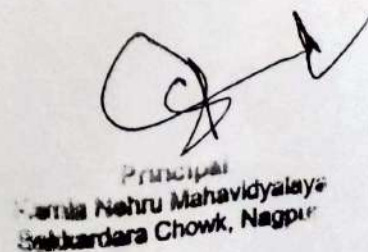 Principal
Kamla Nehru Mahavidyalaya
Sakkardara Chowk, Nagpur